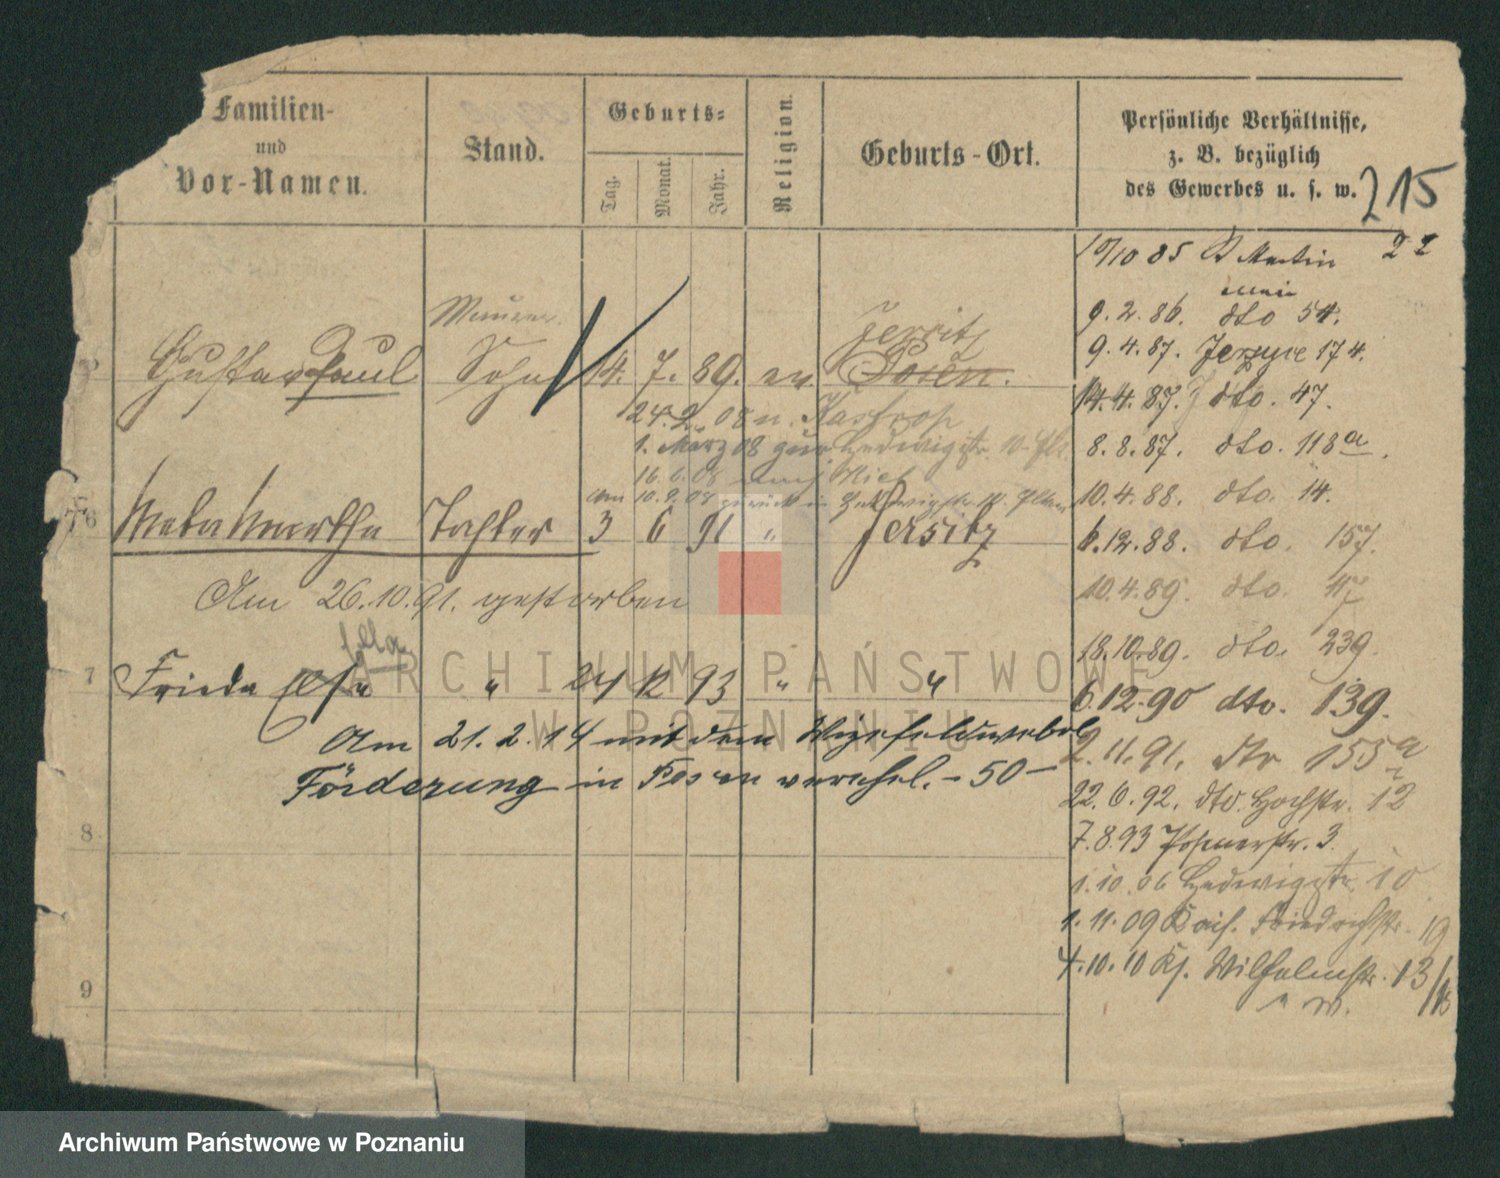 Familien-
und
Vor-Namen.
Stand.
Geburts-
Tag.
Monat.
Jahr.
Religion.
Geburts-Ort.
Persönliche Verhältnisse,
z. B. bezüglich
des Gewerbes u. s. w.
215
10/10 85 St Martin 22
9. 2. 86. dto 54.
9. 4. 87. Jerzyce 174.
14. 4. 87. dto. 47.
8. 8. 87. dto. 118a.
10. 4. 88. dto. 14.
6. 12. 88. dto. 157.
10. 4. 89. dto.
18. 10. 89. dto. 239.
6. 12. 90 dto. 139.
2. 11. 91. dto 155a
22. 6. 92. dto. Hochstr. 12
7. 8. 93 Posenerstr. 3.
1. 10. 06 Hedwigstr. 10
1. 11. 09 Kais. Friedrichstr. 19
4. 10. 10 Ks. Wilhelmstr. 13/
Maurer.
Jersitz
Gustav Paul Sohn 14. 7. 89. ev. Posen.
24. 2. 08 n. Kastrop
1. März 08 zur Hedwigstr. 10
16. 6. 08 nach
Am 10. 9. 08 zurück in Hedwigstr. 10
6 Meta Martha Tochter 3 6 91 " Jersitz
Am 26. 10. 91. gestorben
Ella
7 Frieda Elsa " 24 12 93 " "
Am 21. 2. 14 mit dem Vizefeldwebel
Förderung in Posen verehel. - 50 -
8
9
ARCHIWUM PAŃSTWOWE
W POZNANIU
Archiwum Państwowe w Poznaniu